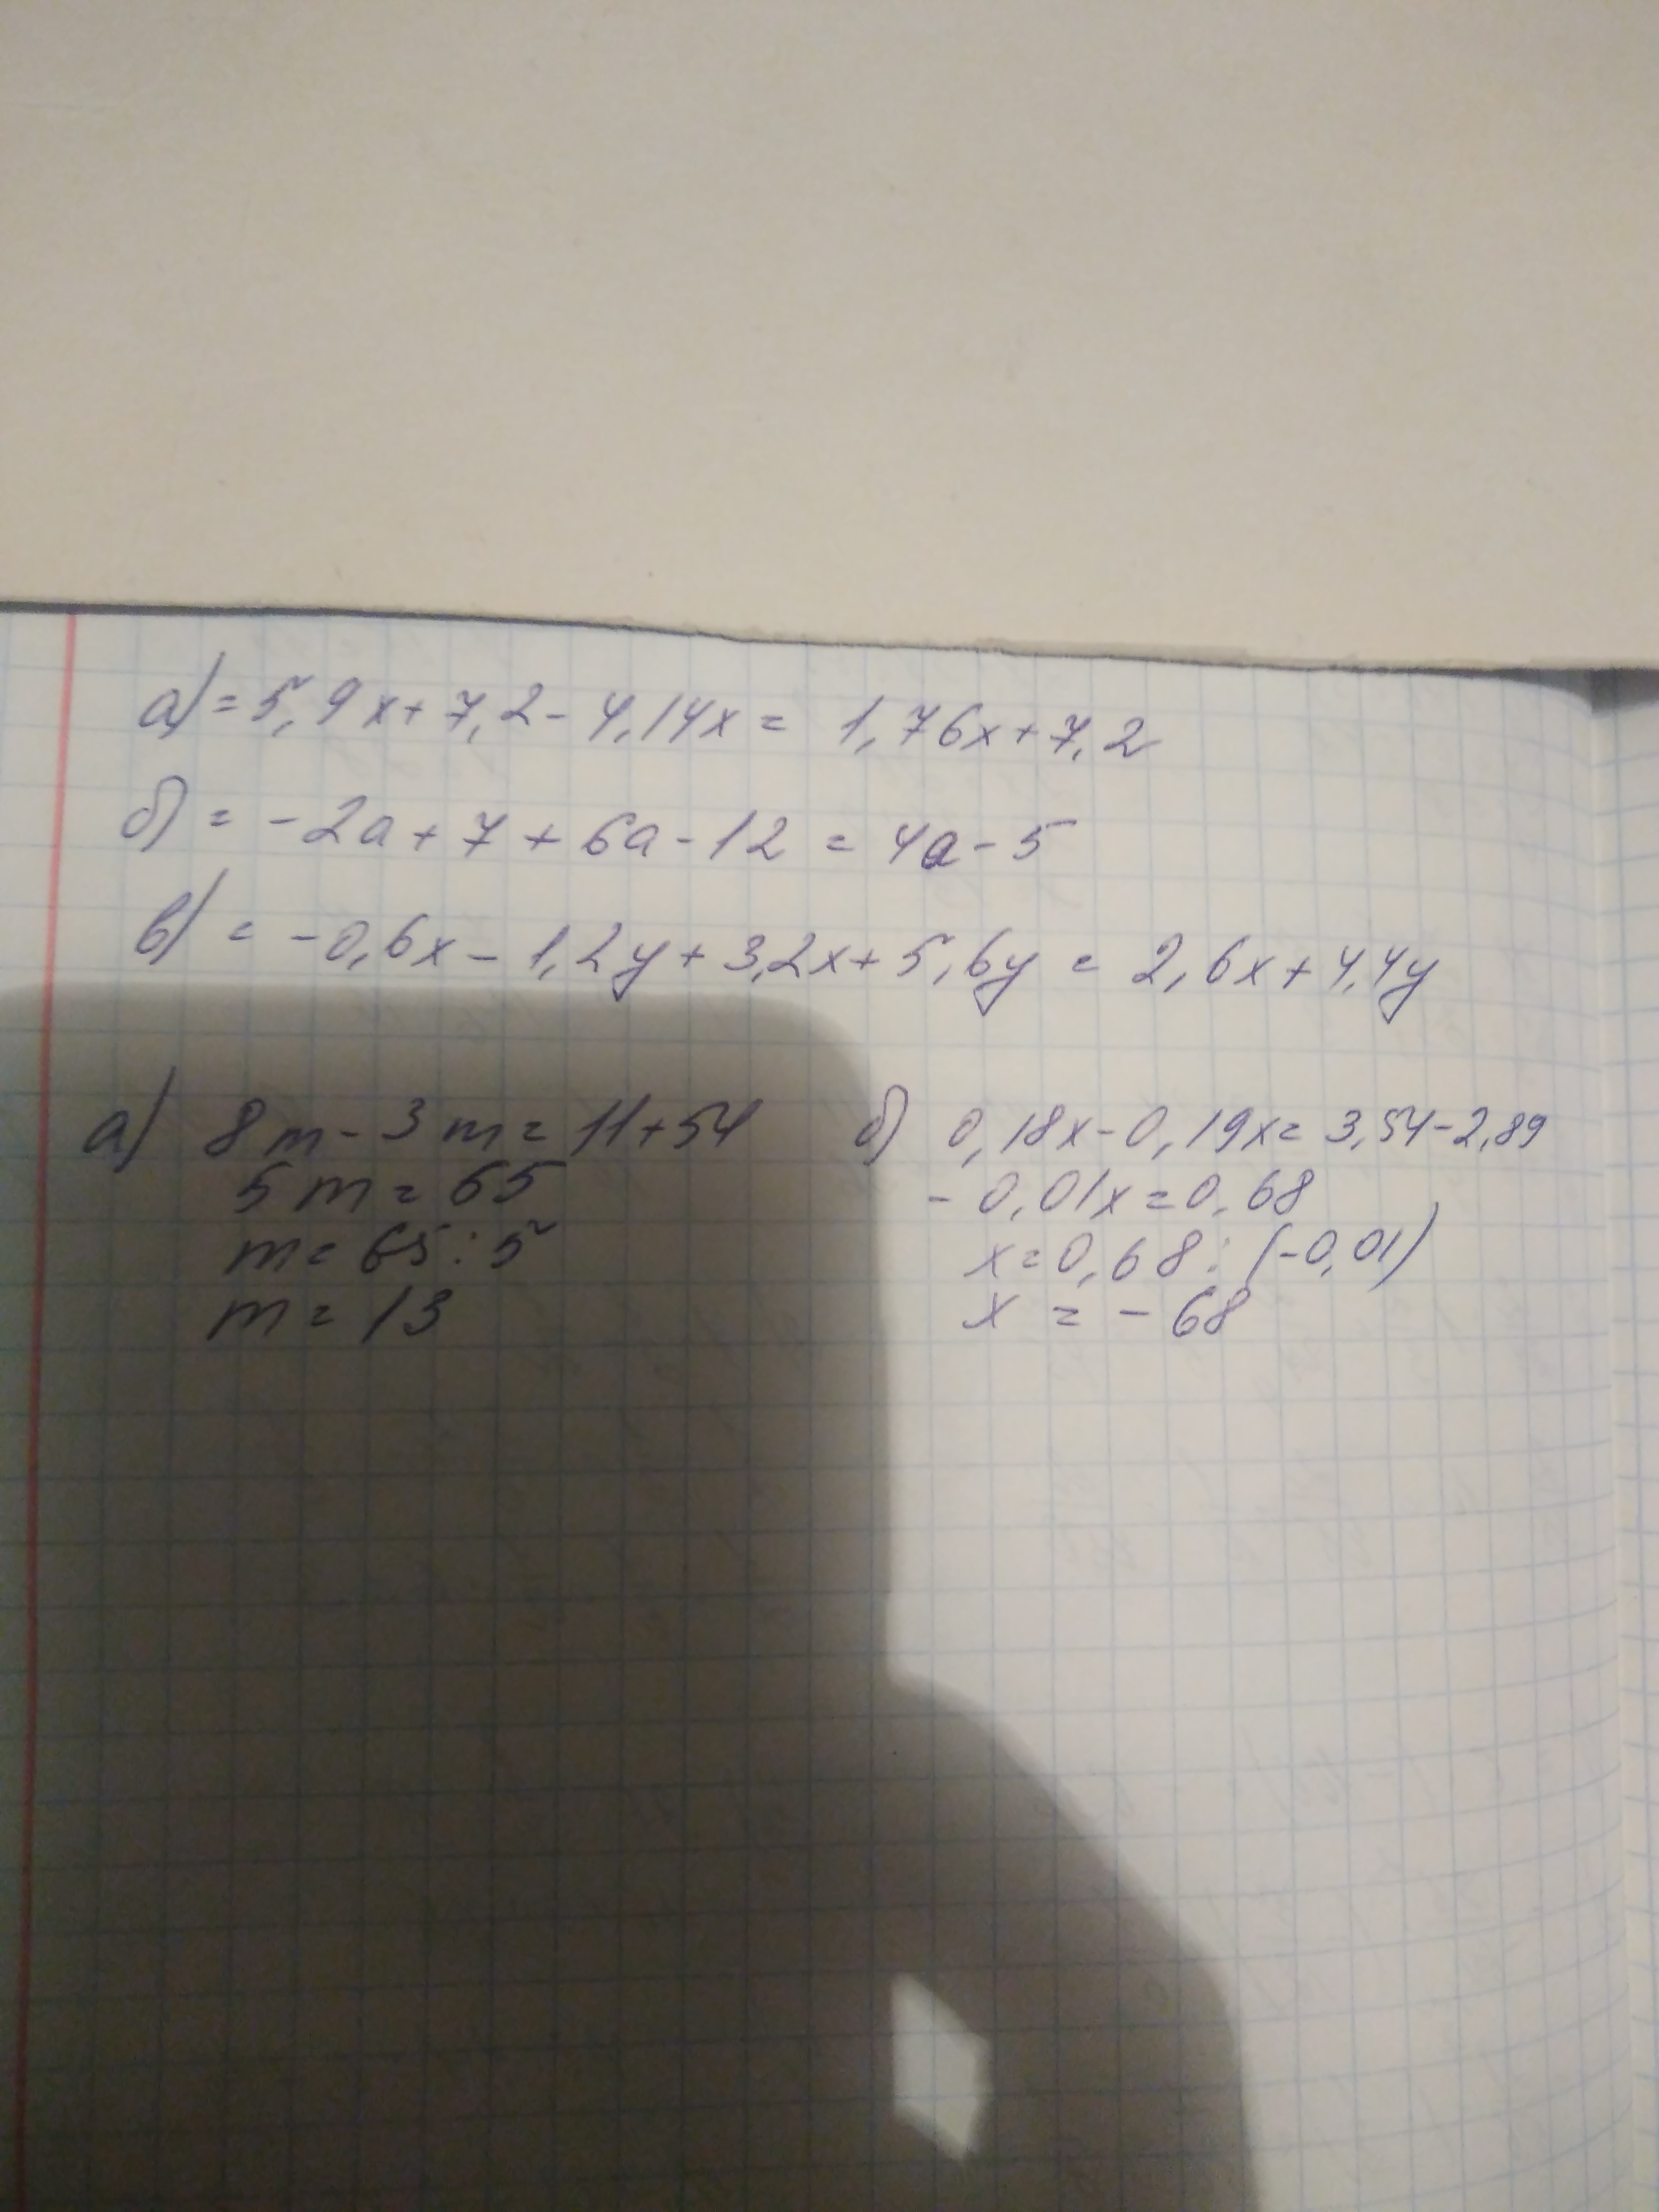 а) = 5,9x + 7,2 - 4,14x = 1,76x + 7,2
б) = -2a + 7 + 6a - 12 = 4a - 5
в) = -0,6x - 1,2y + 3,2x + 5,6y = 2,6x + 4,4y
а) 8m - 3m = 11 + 54
5m = 65
m = 65 : 5
m = 13
б) 0,18x - 0,19x = 3,54 - 2,89
-0,01x = 0,68
x = 0,68 : (-0,01)
x = -68